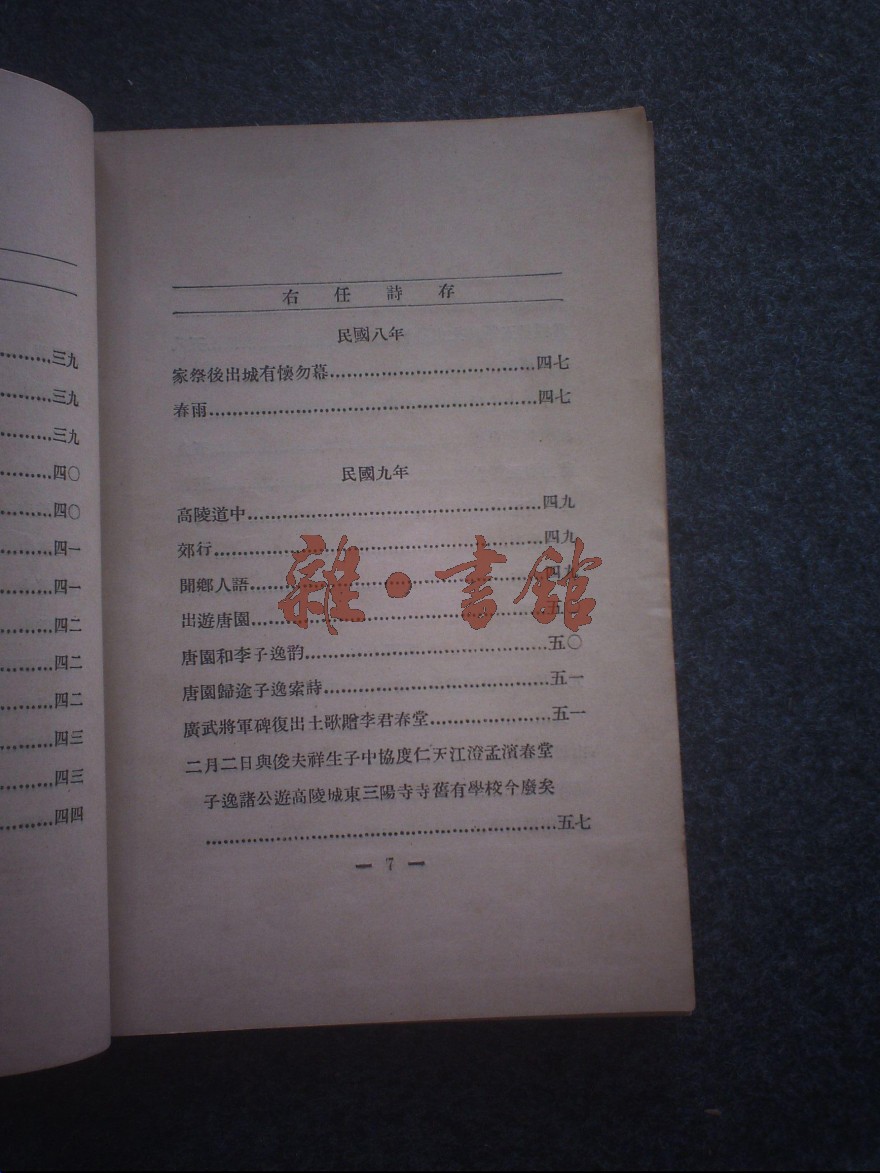 三九
三九
三九
四〇
四〇
四一
四一
四二
四二
四二
四三
四三
四四
右任詩存
民國八年
家祭後出城有懷勿幕……四七
春雨……四七
民國九年
高陵道中……四九
郊行……四九
聞鄉人語……四九
出遊唐園……五
唐園和李子逸韵……五〇
唐園歸途子逸索詩……五一
廣武將軍碑復出土歌贈李君春堂……五一
二月二日與俊夫祥生子中協度仁天江澄孟濱春堂
子逸諸公遊高陵城東三陽寺寺舊有學校今廢矣
……五七
— 7 —
雜·書館